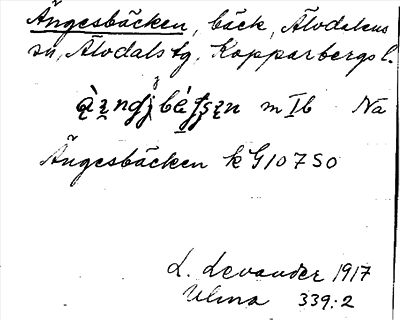 Ängesbäcken, bäck, Älvdalens
sn, Älvdals tg, Kopparbergs l.
m Ib Na
Ängesbäcken k G107SO
L. Levander 1917
Ulma 339:2